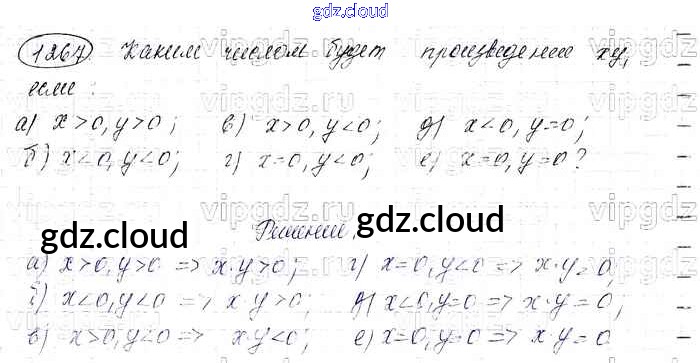 gdz.cloud
1267 Каким числом будет произведение xy,
если:
а) x>0, y>0; в) x>0, y<0; д) x<0, y=0;
б) x<0, y<0; г) x=0, y<0; е) x=0, y=0?
Решение,
gdz.cloud gdz.cloud
а) x>0, y>0 => x·y>0; г) x=0, y<0 => x·y=0,
б) x<0, y<0 => x·y>0; д) x<0, y=0 => x·y=0;
в) x>0, y<0 => x·y<0; е) x=0, y=0 => x·y=0